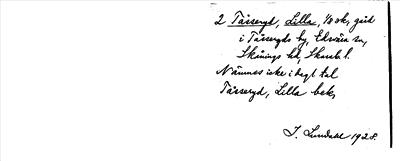 2 Tåxeryd, Lilla, 1/8 sk, gård
i Tåxeryds by, Edsvära sn,
Skånings hd, Skarab. l.
Nämnes icke i dagl. tal
Tåxeryd, Lilla bek,
J. Lundahl 1928.